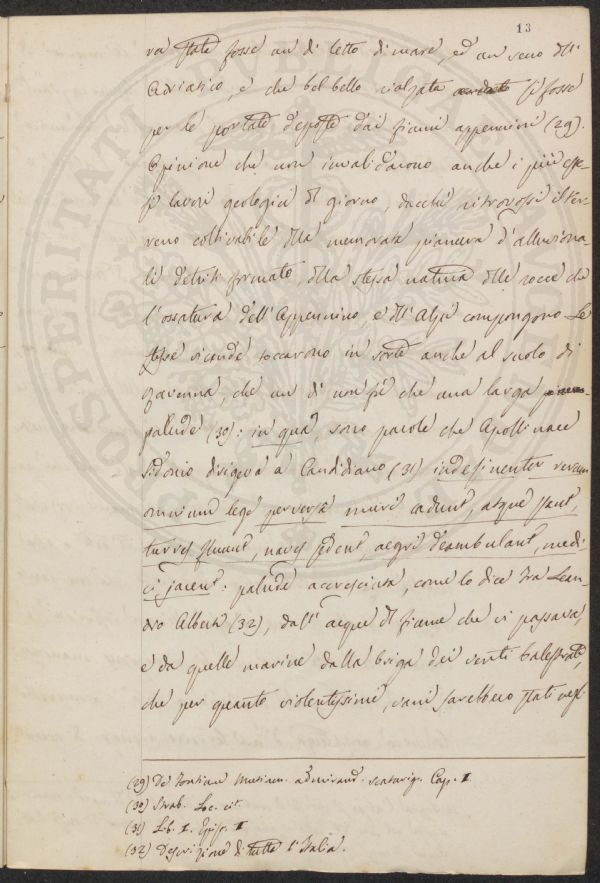 13
ra state fosse un dì letto di mare, ed un seno dll'
Adriatico, e che bel bello rialzata si fosse
per le portate deposte dai fiumi appennini (29).
Opinione che non invalidarono anche i più este-
si lavori geologici dl giorno, dacchè ritrovossi il ter-
reno coltivabile dlla memorata pianura d'alluviona-
li detriti formato, dlla stessa natura dlle rocce che
l'ossatura dell'Appennino, e dll'Alpi compongono. Le
stesse vicende toccarono in sorte anche al suolo di
Ravenna, che un dì non fu che una larga
palude (30): in qua, sono parole che Apollinare
Sidonio dirigeva a Candidiano (31) indesinenter rerum
omnium lege perversa muri cadunt, atque stant,
turres fluunt, naves sedent, aegri deambulant, medi-
ci jacent: palude accresciuta, come lo dice Fra Lean-
dro Alberti (32), dall'acque dl fiume che vi passava,
e da quelle marine dalla briga dei venti balestrate,
che per quanto violentissimi, vani sarebbero stati negl'
(29) De Fontium Mutinen. admirand. scaturig. Cap. I
(30) Strab. Loc. cit.
(31) Lib. I. Epist. I
(32) Descrizione di tutta l'Italia.
PROSPERITATI PUBLICAE